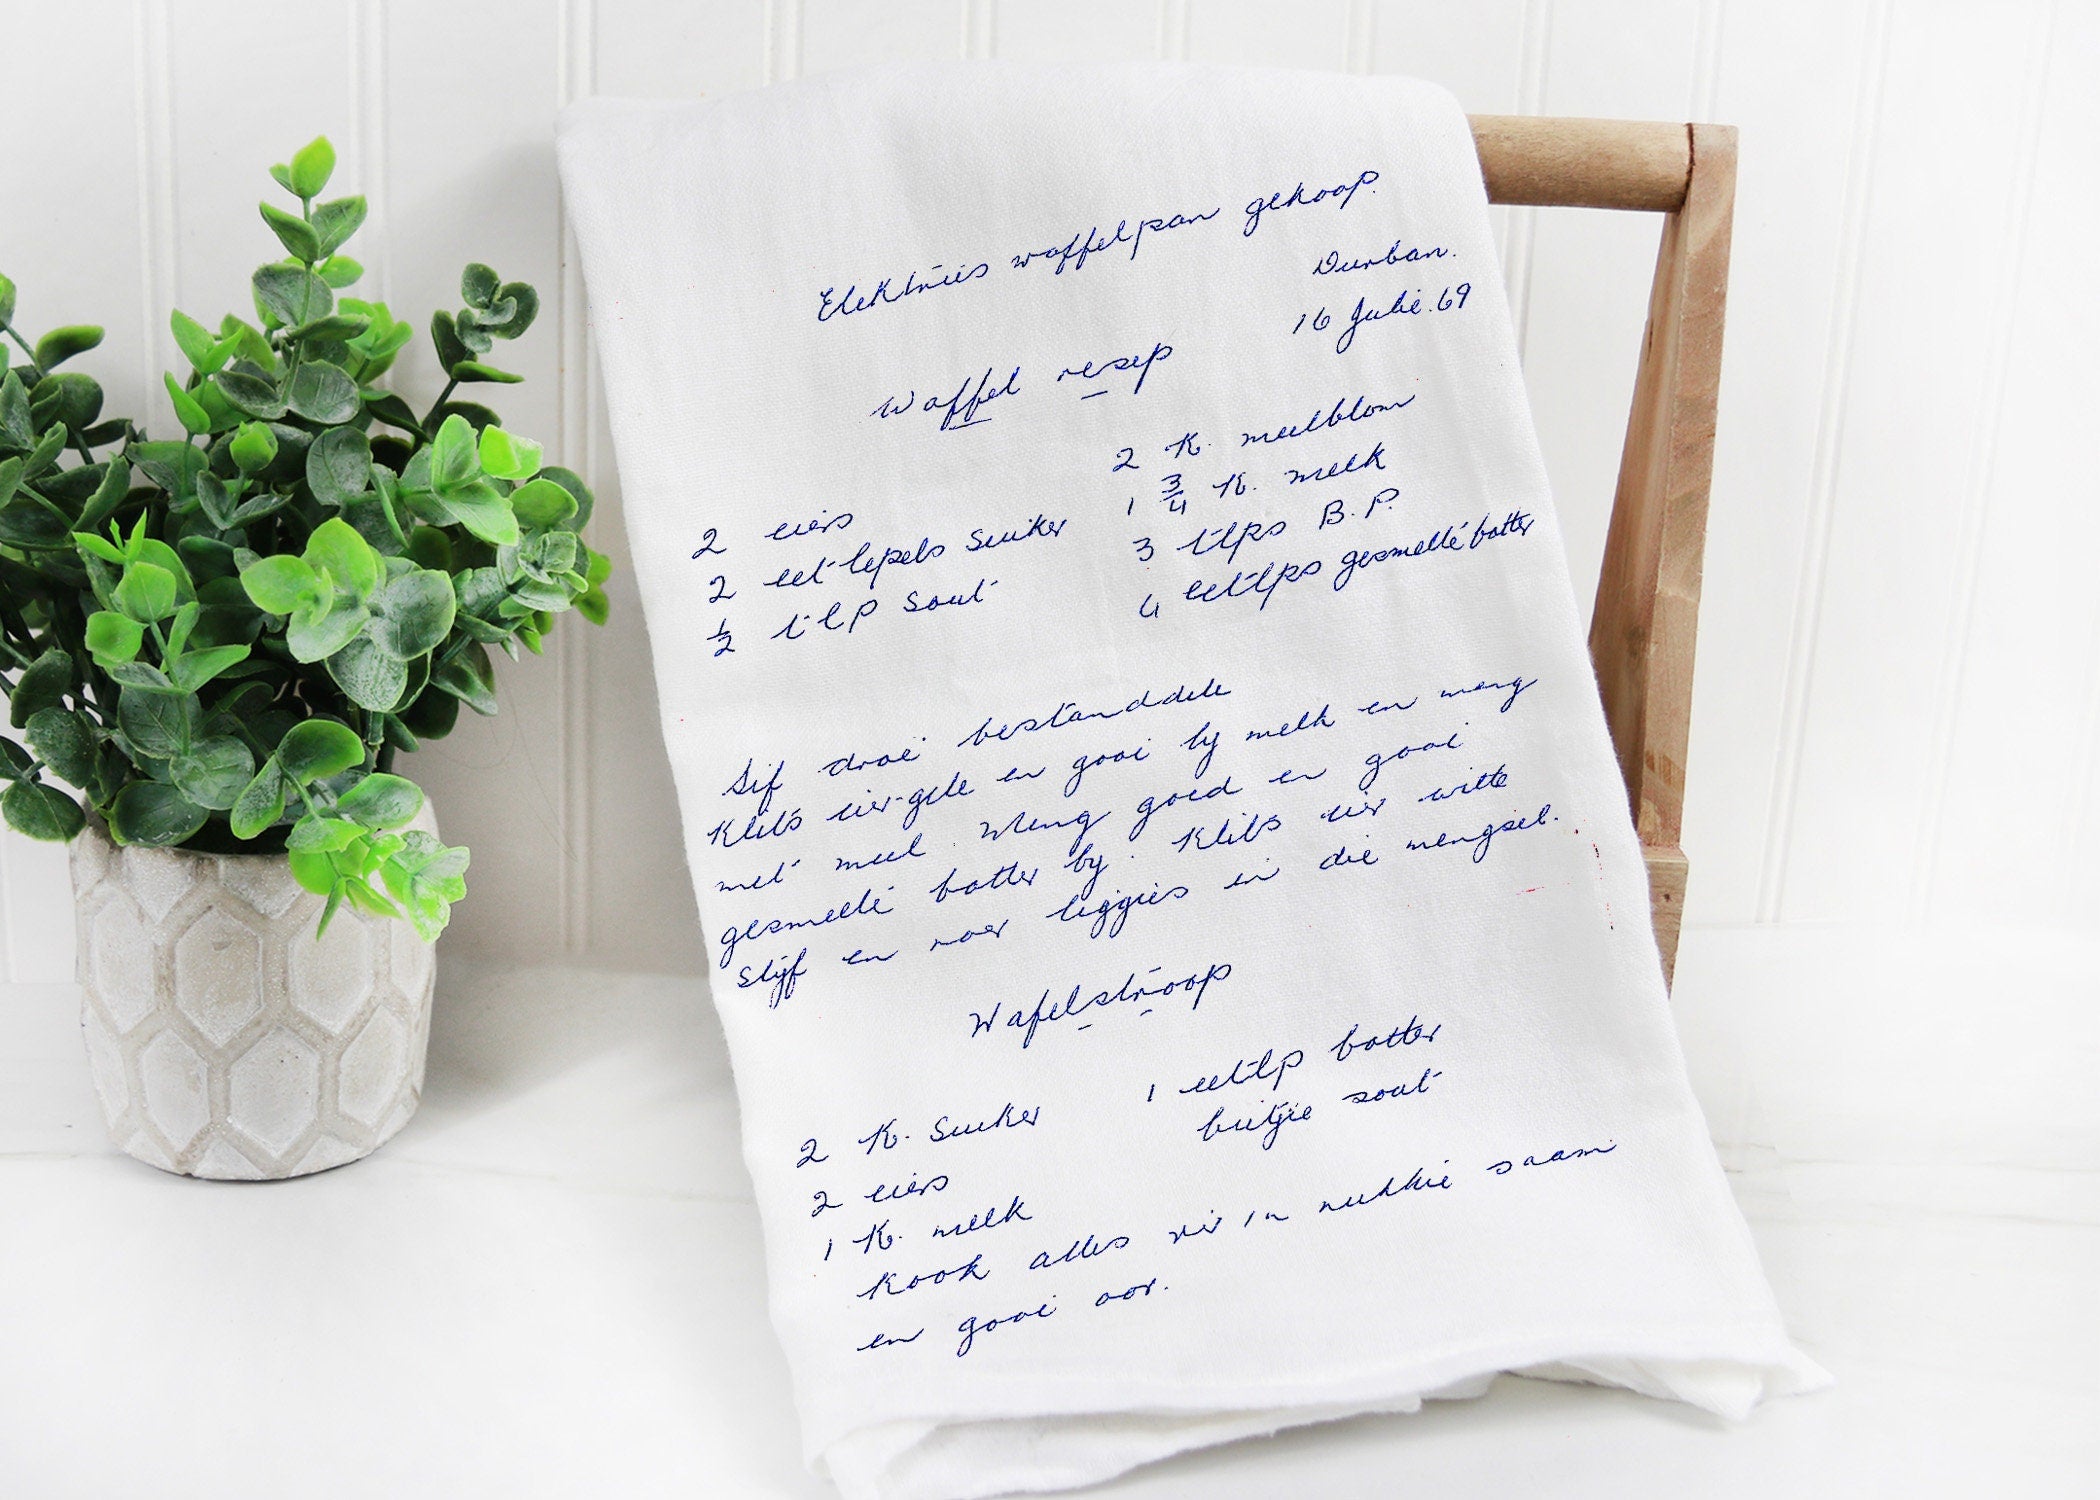 Elektries waffelpan gekoop.
Durban.
16 Julie.69
Waffel resep
2 eiers
2 eet-lepels suiker
½ t-lp sout
2 K. meelblom
1 ¾ K. melk
3 tlps B.P.
4 eetlps gesmelte botter
Sif droë bestanddele
Klits eier-gele en gooi by melk en meng
met meel. Meng goed en gooi
gesmelte botter by. Klits eier witte
styf en roer liggies in die mengsel.
Wafelstroop
2 K. suiker
2 eiers
1 K. melk
1 eetlp botter
bietjie sout
Kook alles vir 1n rukkie saam
en gooi oor.